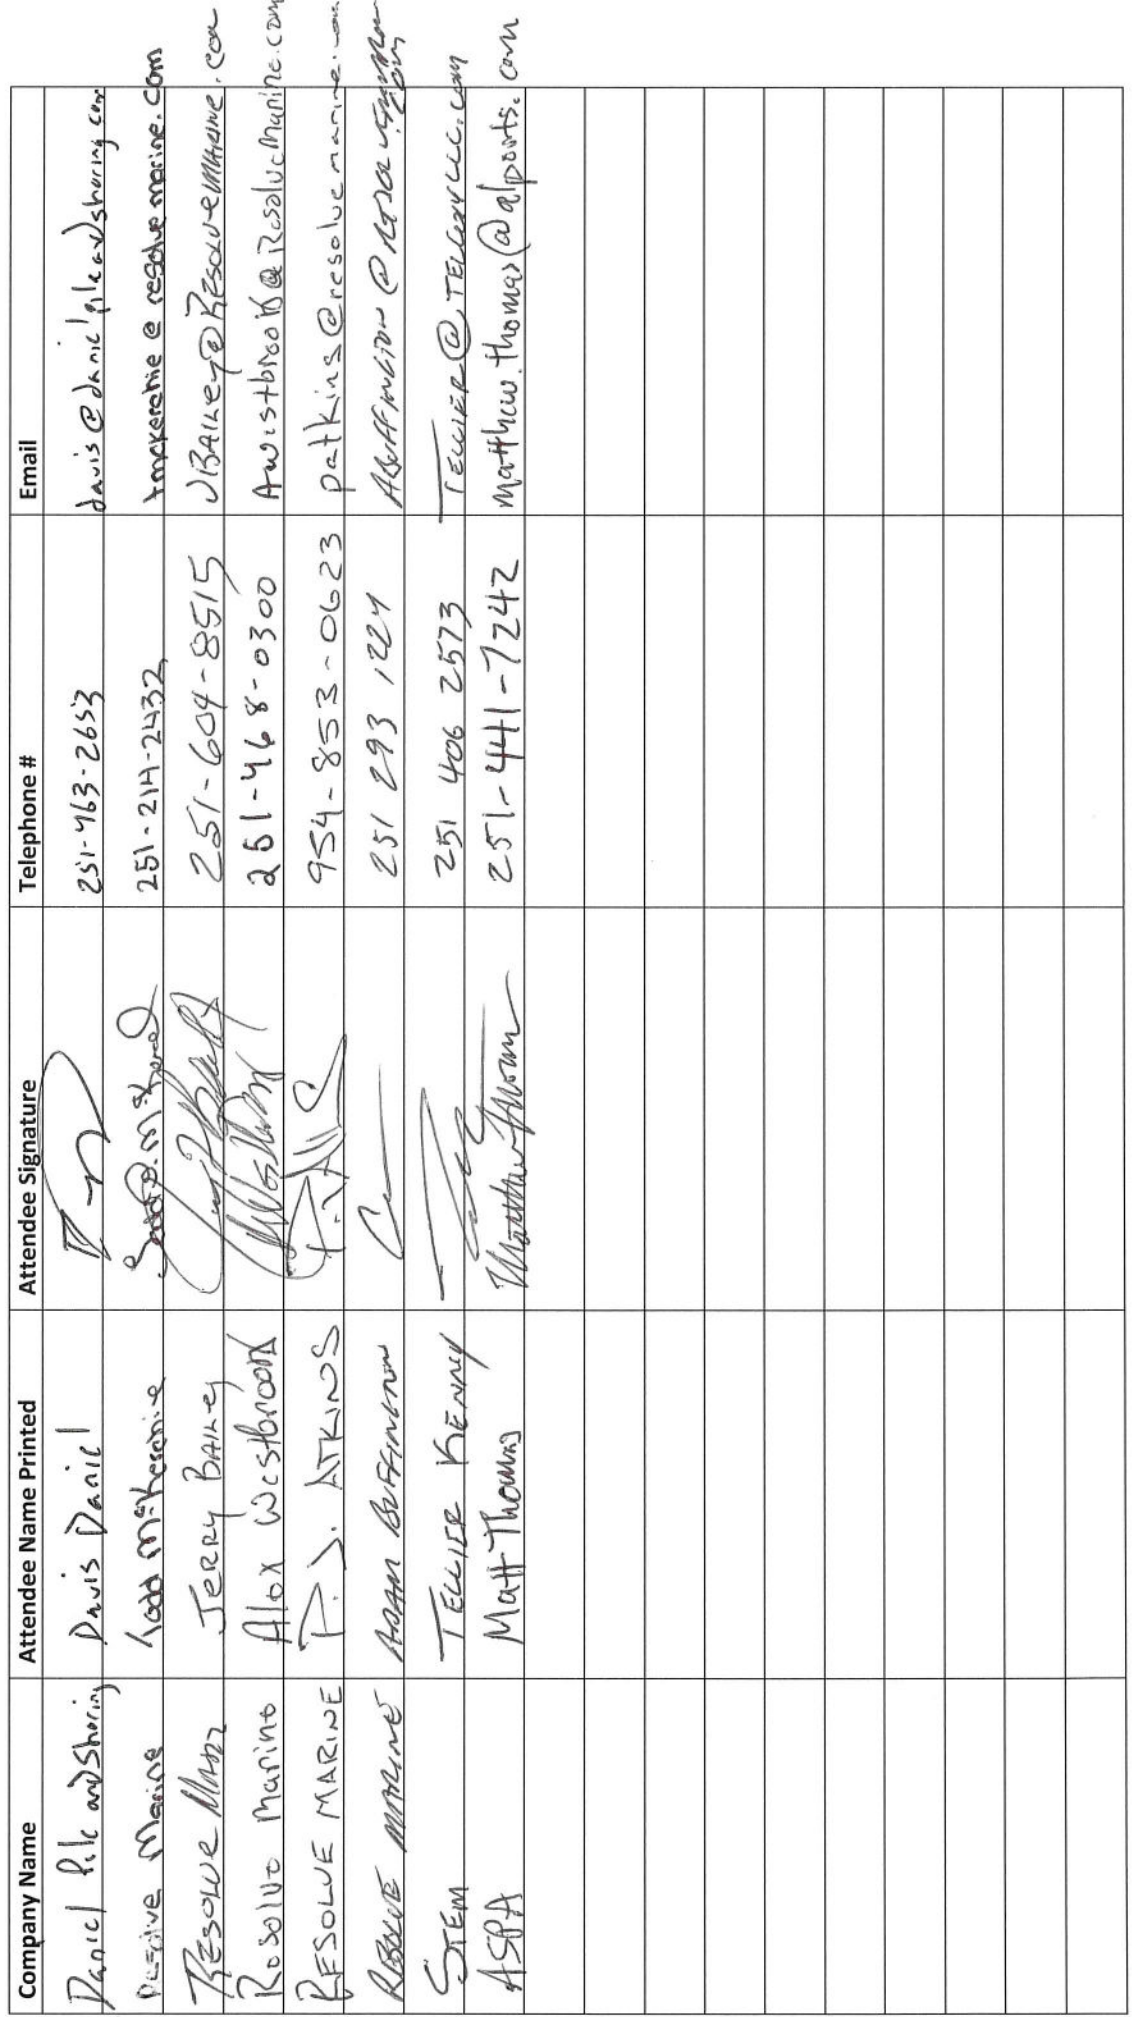 Company Name Attendee Name Printed Attendee Signature Telephone # Email
Daniel Pile and Shoring Davis Daniel 251-463-2653 davis@danielpileandshoring.com
Resolve Marine Todd McKerchie 251-214-2432 tmckerchie@resolvemarine.com
RESOLVE JERRY BAILEY 251-604-8515 JBAILEY@RESOLVEMARINE.COM
Resolve Marine Alex Westbrook 251-468-0300 Awestbrook@ResolveMarine.com
RESOLVE MARINE P.J. ATKINS 954-853-0623 patkins@resolvemarine.com
RESOLVE MARINE ADAM BUFFINGTON 251 293 1224
STEM TELLIER KENNEY 251 406 2573
ASPA Matt Thomas Matthew Thomas 251-441-7242 matthew.thomas@alports.com